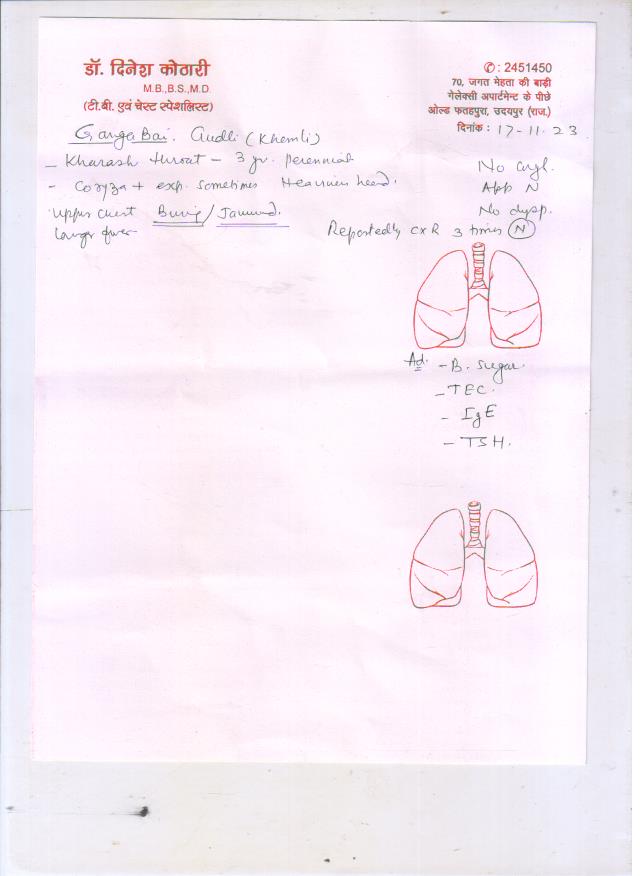 डॉ. दिनेश कोठारी
M.B.,B.S.,M.D.
(टी.बी. एवं चेस्ट स्पेशलिस्ट)
✆ : 2451450
70, जगत मेहता की बाड़ी
गेलेक्सी अपार्टमेन्ट के पीछे
ओल्ड फतहपुरा, उदयपुर (राज.)
दिनांक : 17-11-23
Ganga Bai. Gudli (Khemli)
- Kharash throat - 3 yr. perennial
- Coryza + exp. sometimes Heaviness head.
Upper chest /
No
App N
No dysp.
Reportedly CXR 3 times N
Ad. - B. Sugar.
- TEC.
- IgE
- TSH.